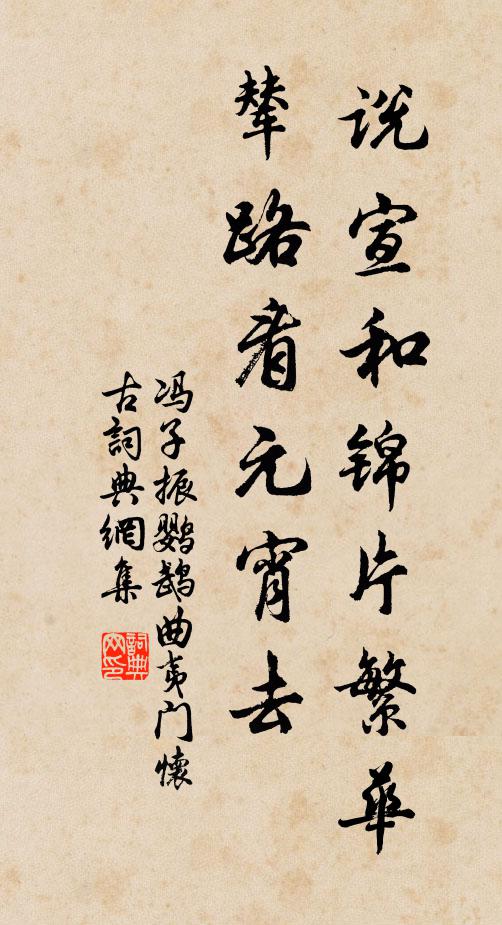 说宣和锦片繁华
辇路看元宵去
冯子振鹦鹉曲夷门怀
古詞典網集
詞典
网印